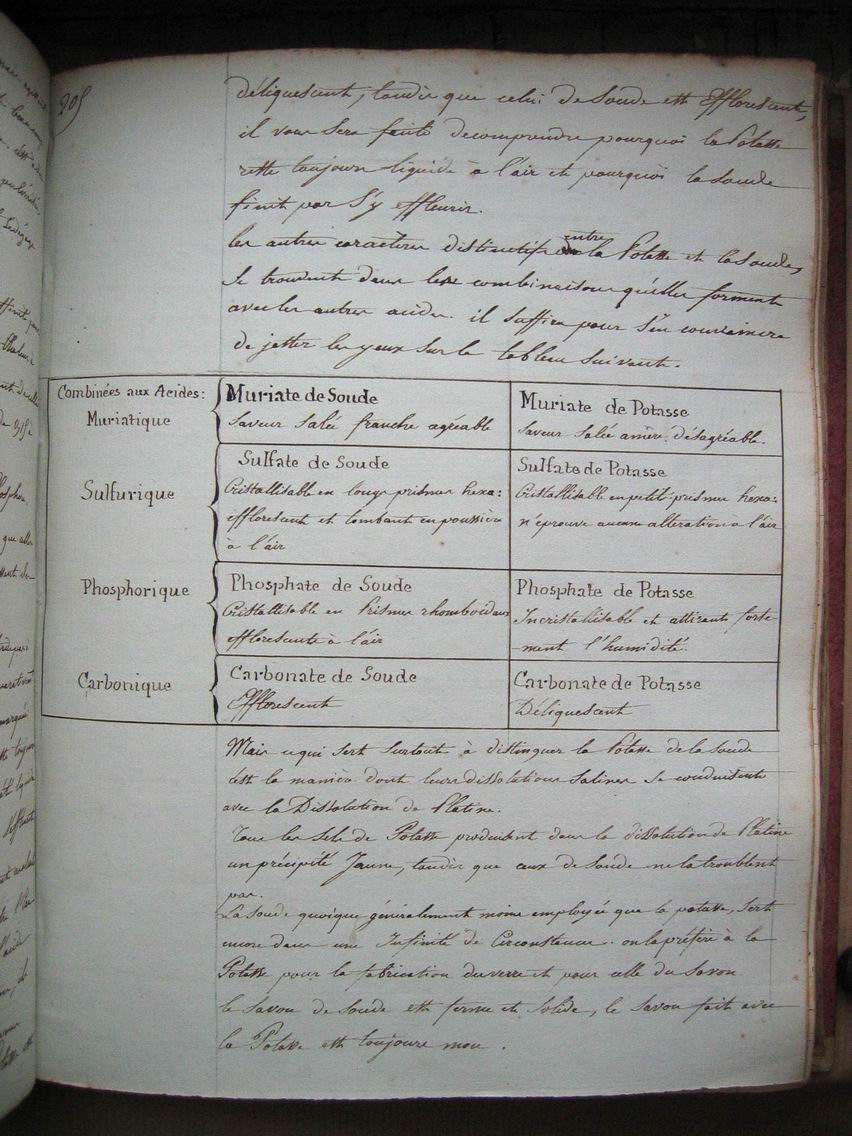 205
déliquescent, tandis que celui de Soude est Efflorescent,
il vous sera facile de comprendre pourquoi la Potasse
reste toujours liquide à l'air et pourquoi la soude
finit par s'y effleurir.
les autres caractères distinctifs entre la Potasse et la soude,
se trouvent dans les combinaisons qu'elles forment
avec les autres acides. il suffira pour s'en convaincre
de jetter les yeux sur le tableau suivant.
Combinées aux Acides:
Muriatique
Muriate de Soude
Saveur salée franche agréable
Muriate de Potasse
Saveur salée amère, désagréable.
Sulfurique
Sulfate de Soude
Cristallisable en longs prismes hexa:
efflorescent et tombant en poussière
à l'air
Sulfate de Potasse
Cristallisable en petit prismes hexa:
n'éprouve aucune altération à l'air
Phosphorique
Phosphate de Soude
Cristallisable en Prismes rhomboidaux
efflorescente à l'air
Phosphate de Potasse
Incristallisable et attirant forte
-ment l'humidité.
Carbonique
Carbonate de Soude
Efflorescent
Carbonate de Potasse
Déliquescent
Mais ce qui sert surtout à distinguer la Potasse de la soude
est la manière dont leurs dissolutions salines se conduisent
avec la Dissolution de Platine.
Tous les sels de Potasse produisent dans la dissolution de Platine
un précipité Jaune, tandis que ceux de Soude ne la troublent
pas.
La Soude quoique généralement moins employée que la potasse, sert
encore dans une Infinité de Circonstances. on la préfère à la
Potasse pour la fabrication du verre et pour celle du Savon
le Savon de Soude est ferme et Solide, le Savon fait avec
la Potasse est toujours mou.